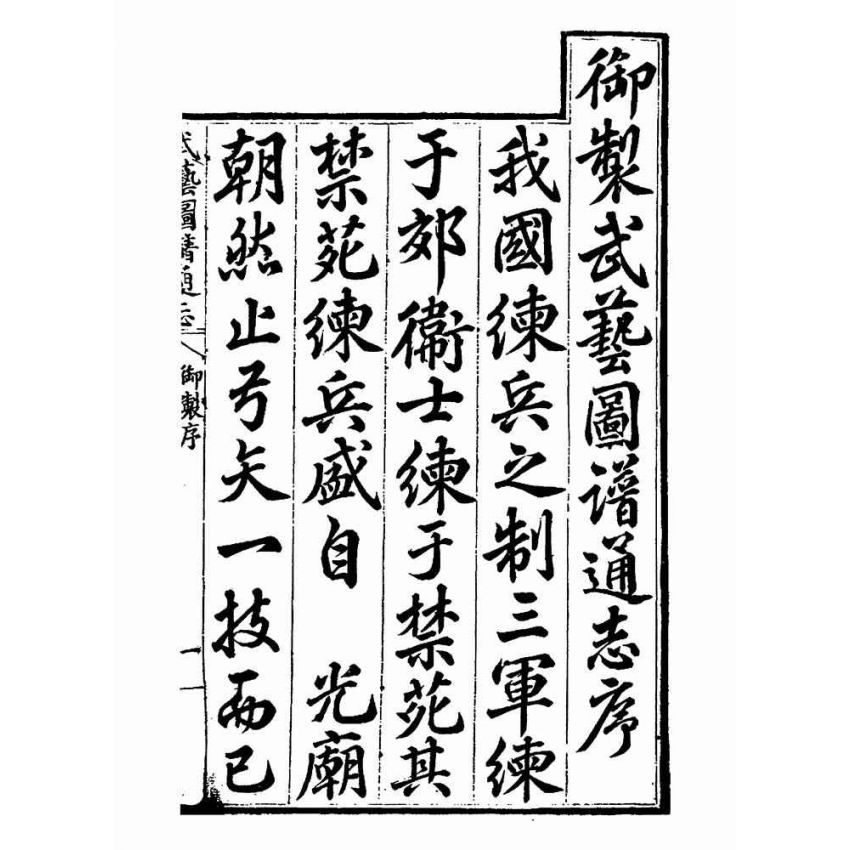 御製武藝圖譜通志序
我國練兵之制三軍練
于郊衛士練于禁苑其
禁苑練兵盛自　光廟
朝然止弓矢一技而已
武藝圖譜通志
御製序
一